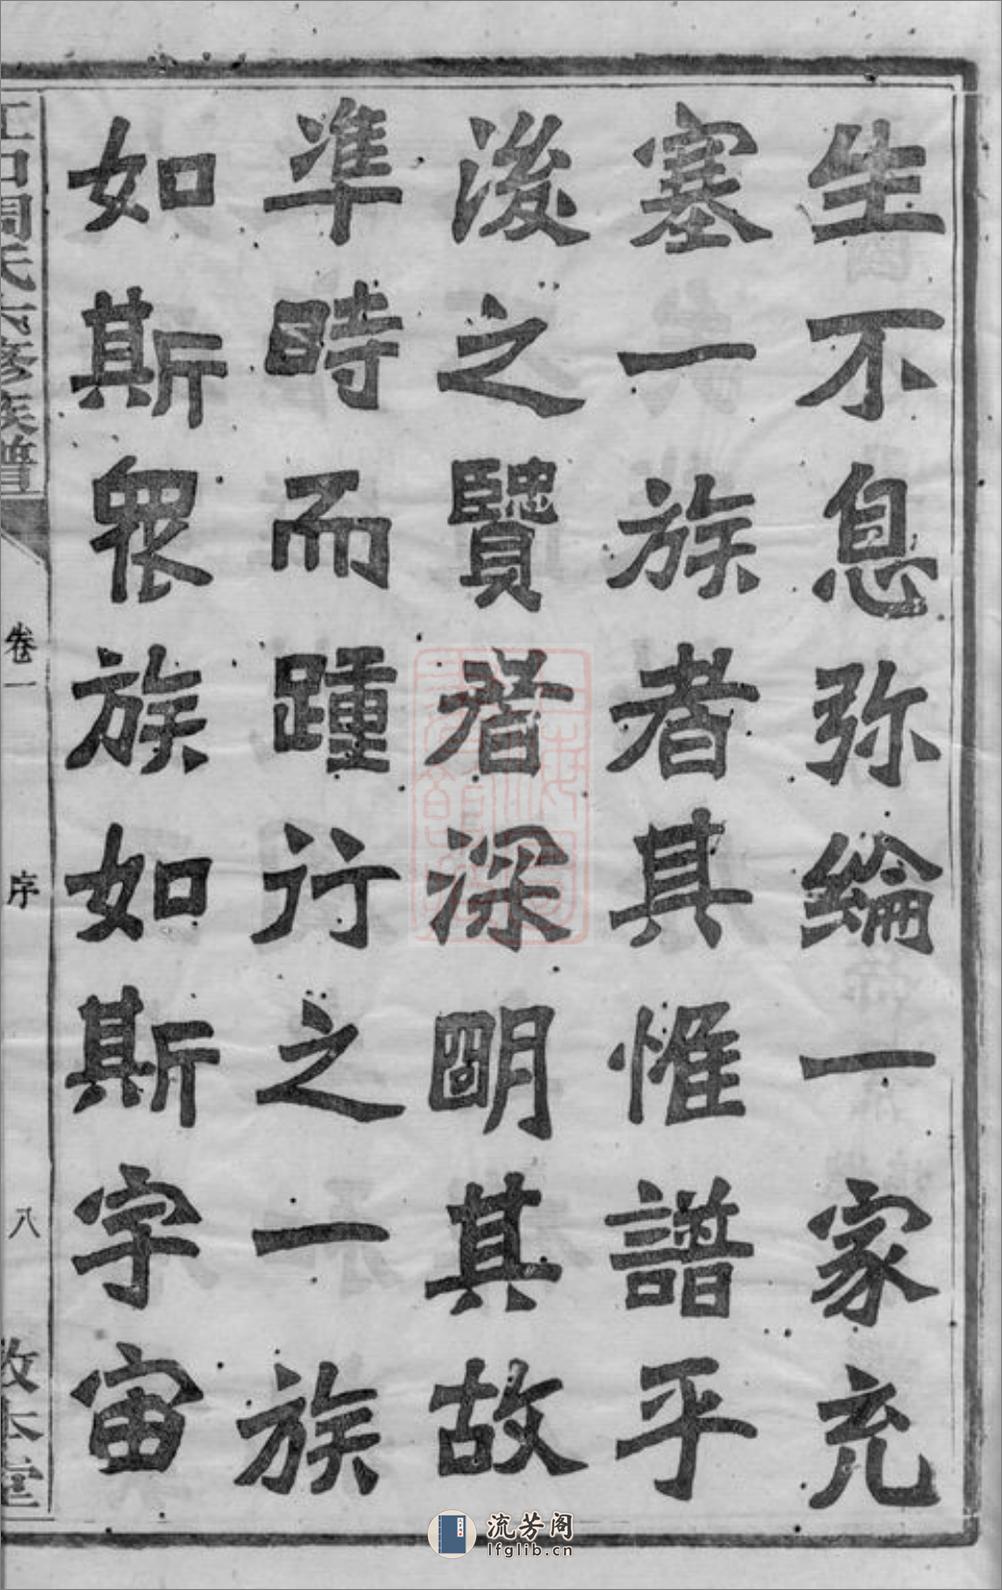 生不息弥綸一家充
塞一族者其惟譜乎
後之覽者深明其故
準時而踵行之一族
如斯眾族如斯字宙
周氏六修族譜
卷一
序
八
流芳阁
lfglib.cn